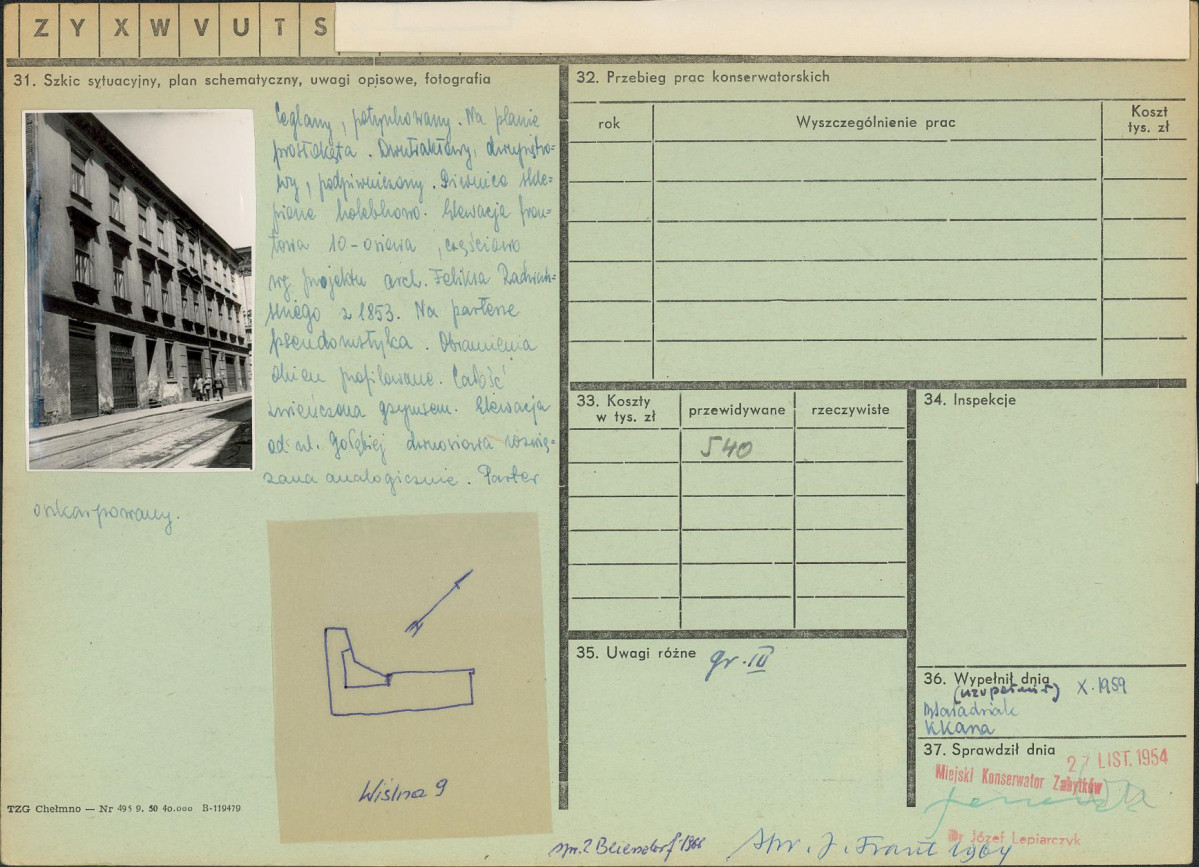 Z Y X W V U T S
31. Szkic sytuacyjny, plan schematyczny, uwagi opisowe, fotografia
Ceglany, potynkowany. Na planie
prostokąta. Dwutraktowy, dwupiętro-
wy, podpiwniczony. Piwnica skle-
piona kolebkowo. Elewacja fron-
towa 10-osiowa, częściowo
wg projektu arch. Feliksa Radwań-
skiego z 1853. Na parterze
pseudorustyka. Obramienia
okien profilowane. Całość
zwieńczona gzymsem. Elewacja
od ul. Gołębiej dwuosiowa rozwią-
zana analogicznie. Parter
oszkarpowany.
Wiślna 9
TZG Chełmno — Nr 495 9. 50 40.000 B-119479
32. Przebieg prac konserwatorskich
rok Wyszczególnienie prac Koszt
tys. zł
33. Koszty
w tys. zł przewidywane rzeczywiste
540
34. Inspekcje
35. Uwagi różne gr. III
36. Wypełnił dnia
(uzupełnił) X. 1959
KKana
37. Sprawdził dnia
27 LIST. 1954
Miejski Konserwator Zabytków
Dr Józef Lepiarczyk
1966
Spr. J. Frant 1964